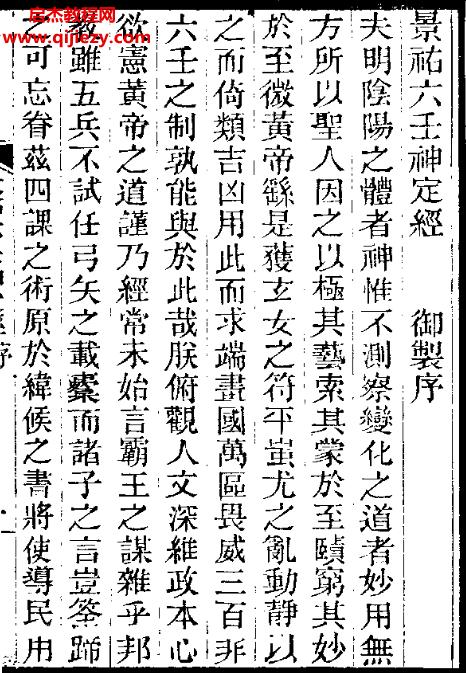 启杰教程网
www.qijiezy.com
景祐六壬神定經　御製序
夫明陰陽之體者神惟不測察變化之道者妙用無
方所以聖人因之以極其藝索其蒙於至賾窮其妙
於至微黃帝繇是獲玄女之符平蚩尤之亂動靜以
之而倚類吉凶用此而求端畫國萬區畏威三百非
六壬之制孰能與於此哉朕俯觀人文深維政本心
欲憲黃帝之道謹乃經常未始言霸王之謀雜乎邦
教雖五兵不試任弓矢之載櫜而諸子之言豈筌蹄
之可忘眷茲四課之術原於緯候之書將使導民用
序